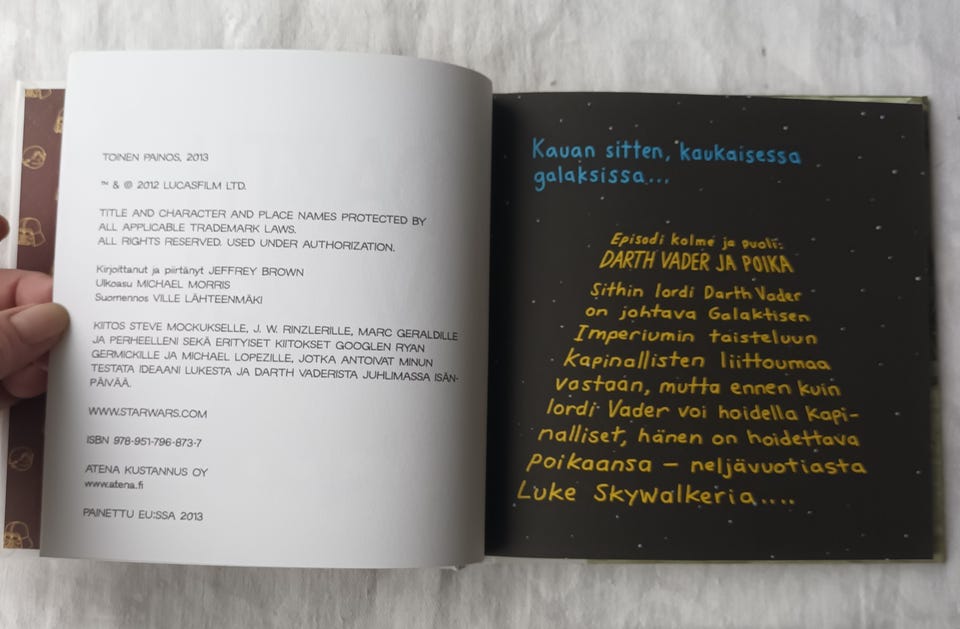 TOINEN PAINOS, 2013
™ & © 2012 LUCASFILM LTD.
TITLE AND CHARACTER AND PLACE NAMES PROTECTED BY
ALL APPLICABLE TRADEMARK LAWS.
ALL RIGHTS RESERVED. USED UNDER AUTHORIZATION.
Kirjoittanut ja piirtänyt JEFFREY BROWN
Ulkoasu MICHAEL MORRIS
Suomennos VILLE LÄHTEENMÄKI
KIITOS STEVE MOCKUKSELLE, J. W. RINZLERILLE, MARC GERALDILLE
JA PERHEELLENI SEKÄ ERITYISET KIITOKSET GOOGLEN RYAN
GERMICKILLE JA MICHAEL LOPEZILLE, JOTKA ANTOIVAT MINUN
TESTATA IDEAANI LUKESTA JA DARTH VADERISTA JUHLIMASSA ISÄN-
PÄIVÄÄ.
WWW.STARWARS.COM
ISBN 978-951-796-873-7
ATENA KUSTANNUS OY
www.atena.fi
PAINETTU EU:SSA 2013
Kauan sitten, kaukaisessa
galaksissa...
Episodi kolme ja puoli:
DARTH VADER JA POIKA
Sithin lordi Darth Vader
on johtava Galaktisen
Imperiumin taisteluun
Kapinallisten liittoumaa
vastaan, mutta ennen kuin
lordi Vader voi hoidella kapi-
nalliset, hänen on hoidettava
poikaansa – neljävuotiasta
Luke Skywalkeria....